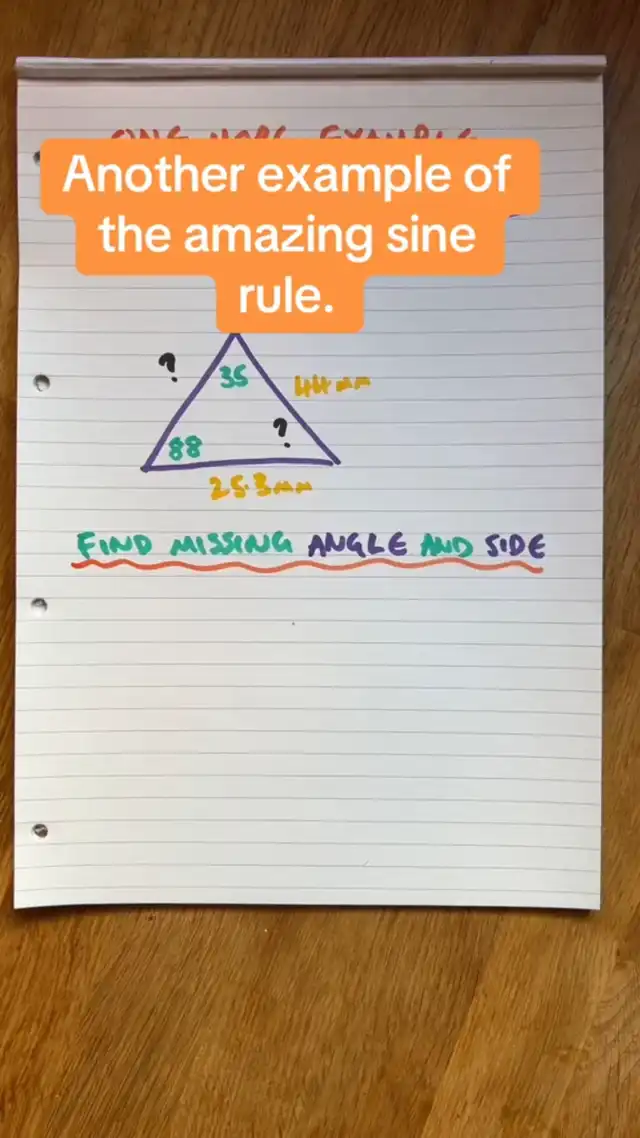 Another example of
the amazing sine
rule.
?
35
44mm
88
?
25.3mm
FIND MISSING ANGLE AND SIDE